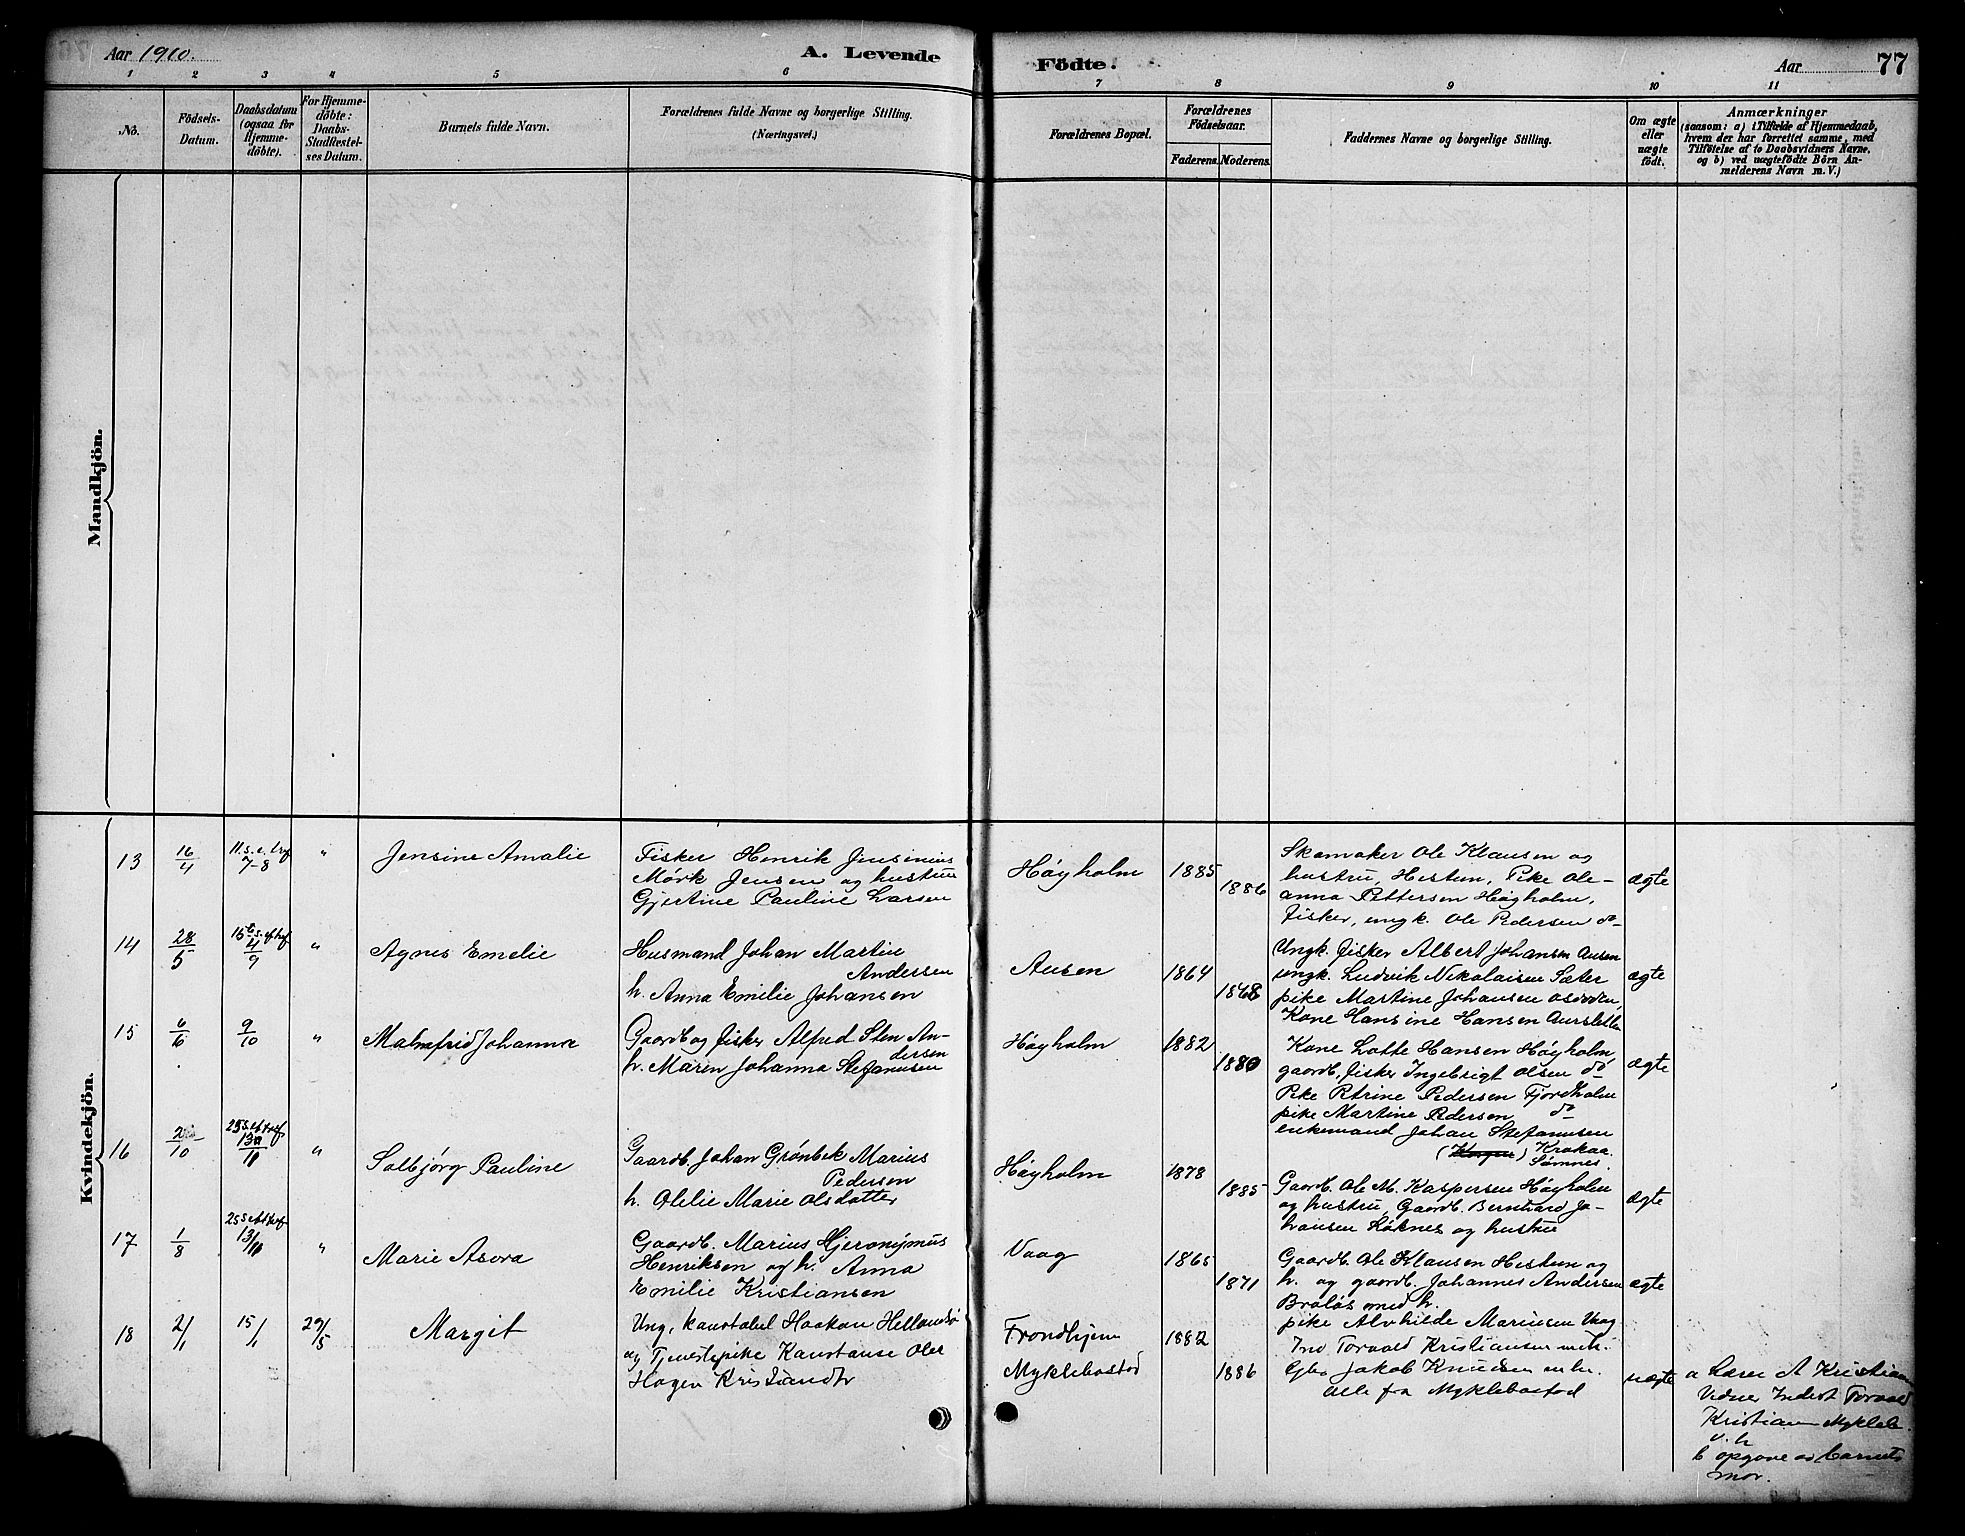 Aar 1910.
A. Levende
Födte.
Aar
77
1 2 3 4 5 6 7 8 9 10 11
No.
Födsels-
Datum.
Daabsdatum
(ogsaa for
Hjemme-
döbte).
For Hjemme-
döbte:
Daabs-
Stadfæstel-
ses Datum.
Barnets fulde Navn.
Forældrenes fulde Navne og borgerlige Stilling.
(Næringsvei.)
Forældrenes Bopæl.
Forældrenes
Födselsaar.
Faderens. Moderens.
Faddernes Navne og borgerlige Stilling.
Om ægte
eller
uægte
födt.
Anmærkninger
(saasom: a) i Tilfælde af Hjemmedaab,
hvem der har forrettet samme, med
Tilföielse af to Daabsvidners Navne,
og b) ved uægtefödte Börn An-
melderens Navn m. V.)
Mandkjön.
Kvindekjön.
13
16/4
11. s. e. tref
7-8
"
Jensine Amalie
Fisker Henrik Jensinius
Mørk Jensen og hustru
Gjertine Pauline Larsen
Høyholm
1885
1886
Skomaker Ole Klausen og
hustru, Hestun, Pike Ole-
anna Pettersen Høgholm,
Fisker, ungk. Ole Pedersen do
ægte
14
28/5
15 s. ef tref
4/9
"
Agnes Emelie
Husmand Johan Martin
Andersen
h. Anna Emilie Johansen
Ausen
1864
1868
Ungk. fisker Albert Johansen Ausen
ungk. Ludvik Nikolaisen Sæter
pike Martine Johansen
Kone Hansine Hansen Aursletten
ægte
15
6/6
9/10
"
Malmfrid Johanna
Gaardb og fisker Alfred Sten An-
dersen
h. Maren Johanna Stefanusen
Høyholm
1882
1880
Kone Lotte Hansen Høyholm,
gaardb, fisker Ingebrigt Olsen do
Pike Petrine Pedersen Fjordholm
pike Martine Pedersen do
enkemand Johan Stefanusen
Krokaa
Sømnes.
ægte
16
2/10
25 s. ef tref
13/11
"
Solbjørg Pauline
Gaardb. Johan Grønbek Marius
Pedersen
h. Olelie Marie Olsdatter
Høyholm
1878
1885
Gaardb. Ole M. Kaspersen Høyholm
og hustru, Gaardb. Bernhard Jo-
hansen Løknes og hustru
ægte
17
1/8
25 s ef tref
13/11
"
Marie Asora
Gaardb. Marius Hjeronymus
Henriksen og h. Anna
Emilie Kristiansen
Vaag
1865
1871
Gaardb. Ole Klausen Hestun og
h. og gaardb. Johannes Andersen
Braløs med h.
pike Alvhilde Mariusen Vaag
ægte
18
2/1
15/1
29/5
Margit
Ung, konstabel Haakon Hellandsø
og Tjenestepike Konstanse Oler
Hagen Kristiandtr
Trondhjem
Myklebostad
1882
1886
Ind Torvald Kristiansen
Gbr Jakob Knudsen
alle fra Myklebostad
uægte
a Lærer A Kristian
Vidner Inderst Torvald
Kristian Mykleb.
o. h
b opgave av barnets
mor.